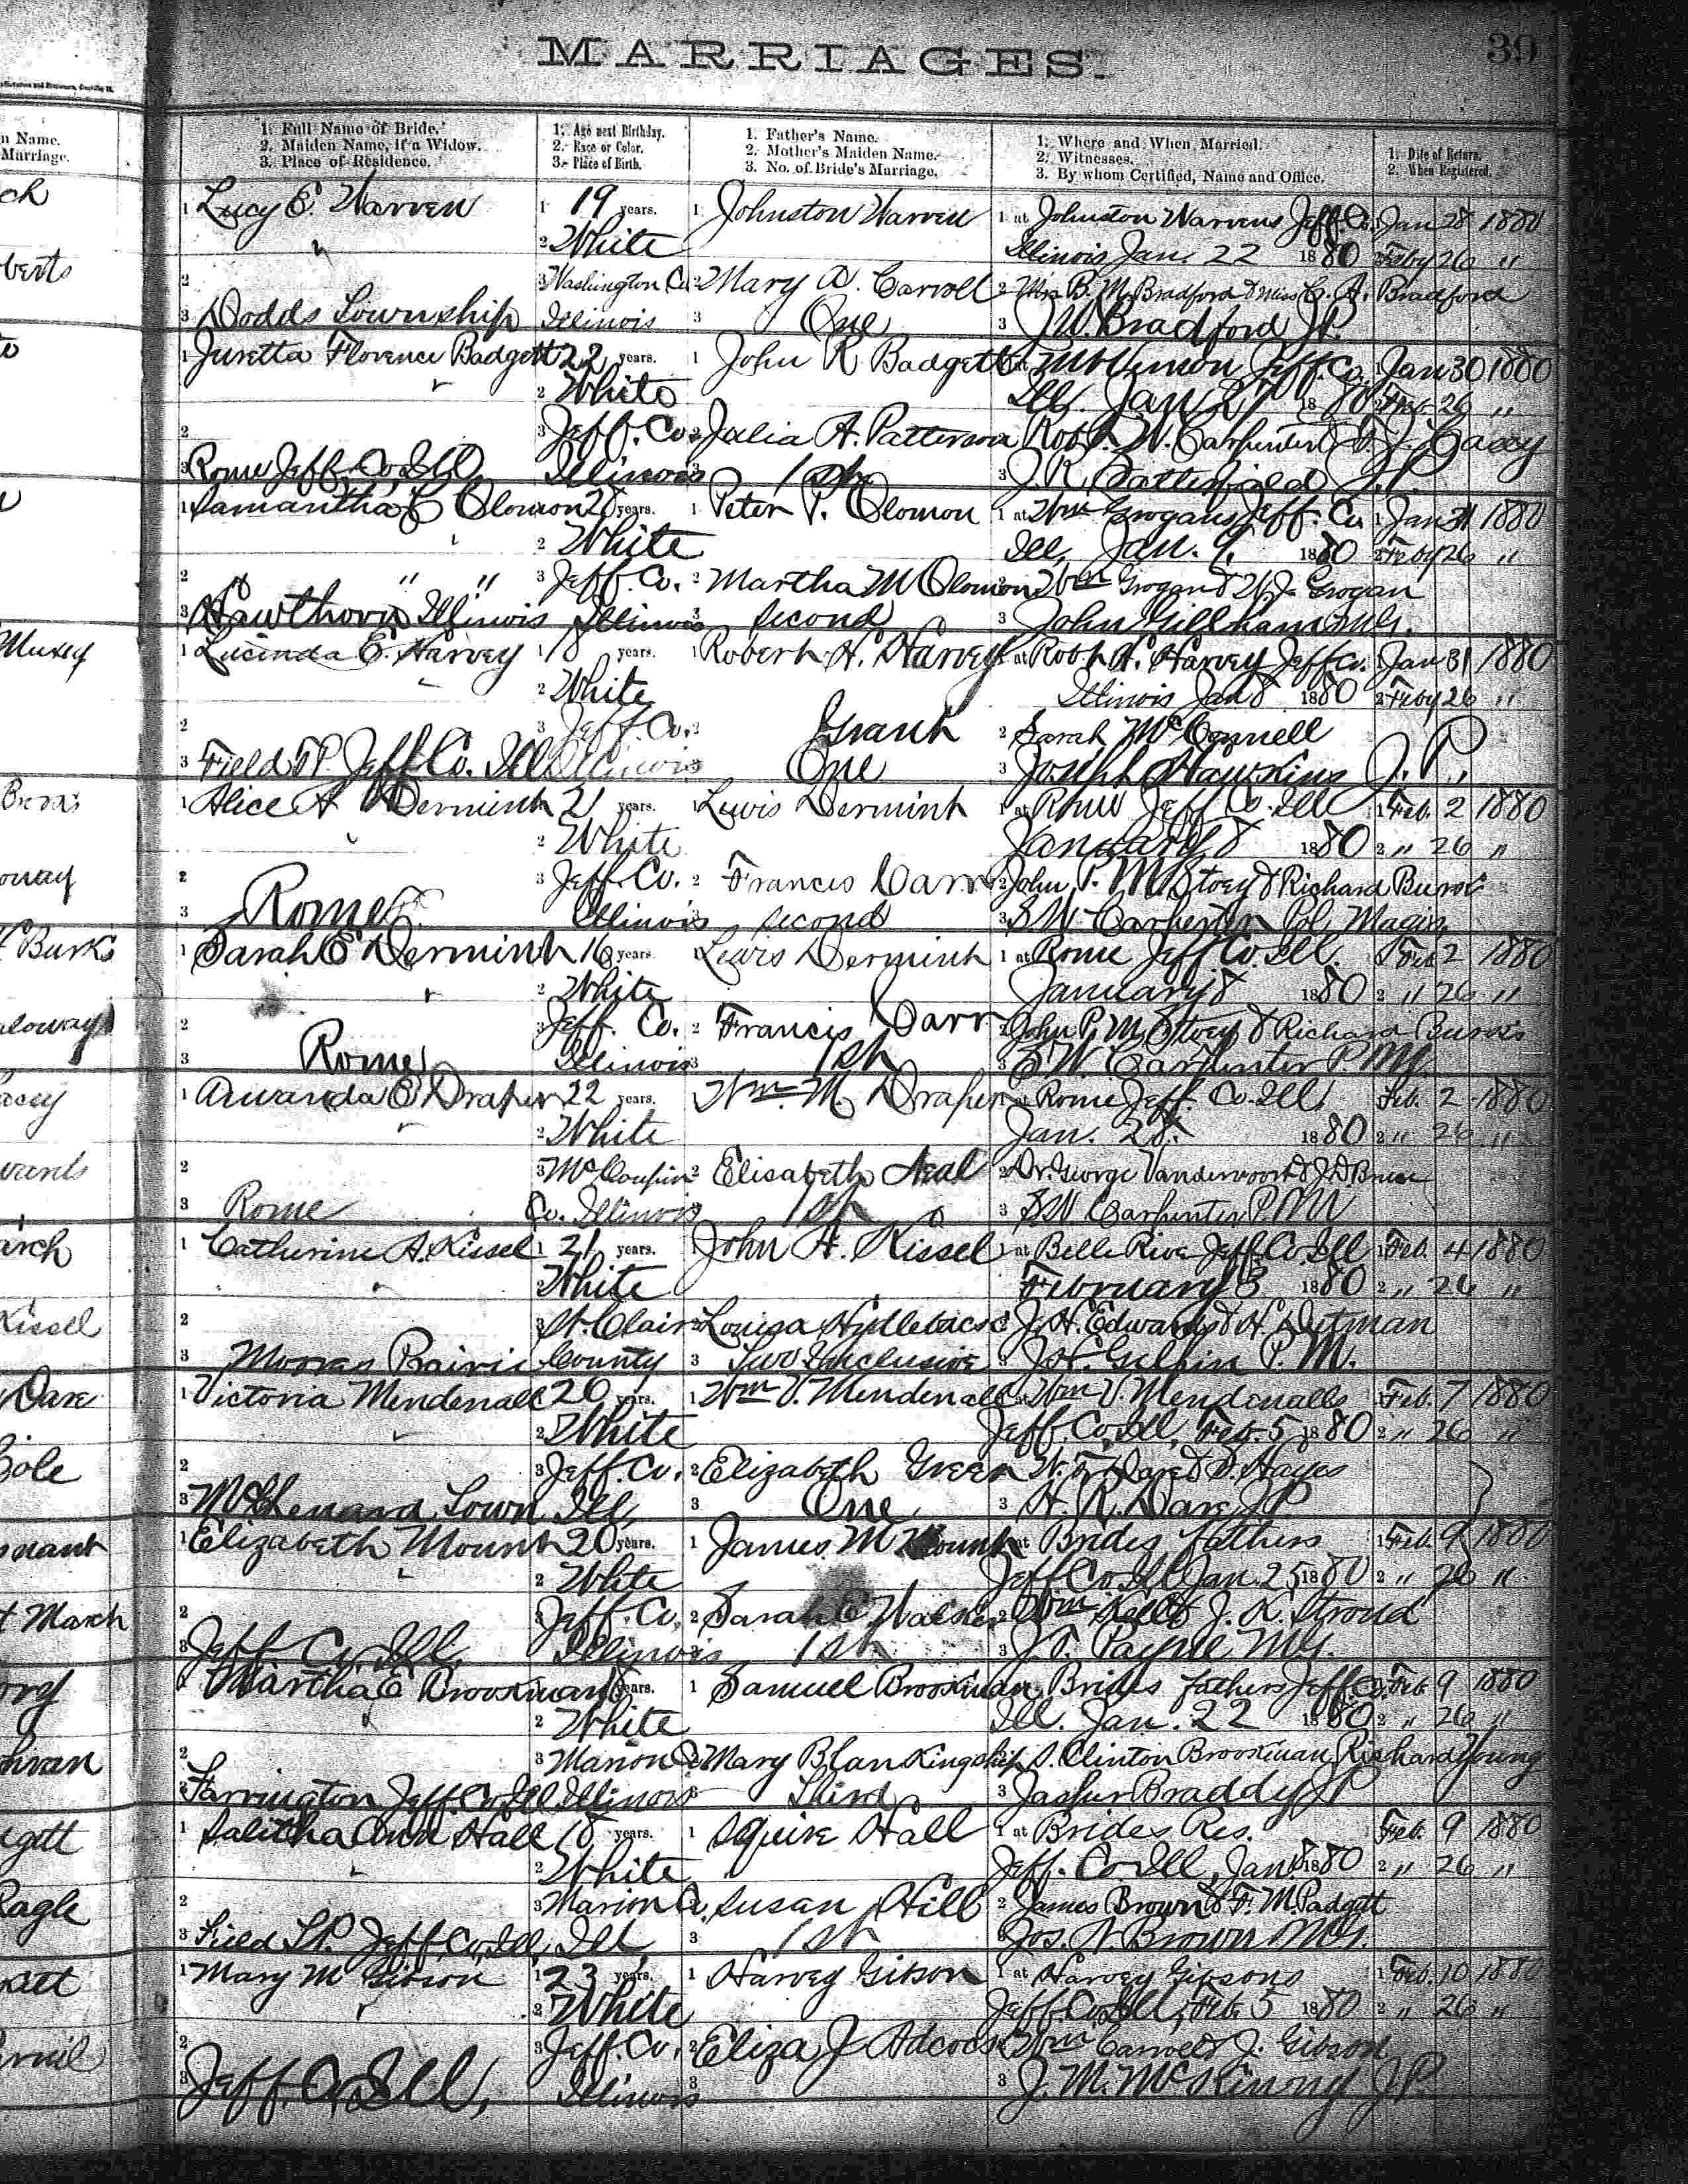 MARRIAGES.
39
n Name.
Marriage.
1. Full Name of Bride.
2. Maiden Name, if a Widow.
3. Place of Residence.
1. Age next Birthday.
2. Race or Color.
3. Place of Birth.
1. Father's Name.
2. Mother's Maiden Name.
3. No. of Bride's Marriage.
1. Where and When Married.
2. Witnesses.
3. By whom Certified, Name and Office.
1. Date of Return.
2. When Registered.
1 Lucy E. Warren 1 19 years. 1 Johnston Warren 1 at Johnston Warrens Jeff. Co. Jan 28 1880
2 White Illinois Jan. 22 1880 Feby 26 "
2 3 Washington Co 2 Mary A. Carroll 2 B. M. Bradford & Miss C. A. Bradford
3 Dodds Township Illinois 3 One 3 J. W. Bradford J.P.
1 Juretta Florence Badgett 22 years. 1 John R Badgett Mt Vernon Jeff. Co. Jan 30 1880
2 White Ill. Jan 27 1880 Feb 26 "
2 3 Jeff. Co. 2 Julia A. Patterson Robt. W. Carpenter & J. Casey
3 Rome Jeff. Co, Ill. Illinois 3 1st 3 J. R. Satterfield J.P.
1 Samantha C Olomon 28 years. 1 Peter P. Olomon 1 at Wm Grogans Jeff. Co 1 Jan 31 1880
2 White Ill. Jan. 9. 1880 2 Feby 26 "
2 " " " 3 Jeff. Co. 2 Martha M Olomon Wm Grogan & W. J. Grogan
3 Hawthorn Illinois Illinois 3 second 3 John Gillham M.G.
1 Lucinda E. Harvey 1 18 years. 1 Robert H. Harvey at Robt H. Harvey Jeff Co. Jan 31 1880
2 White Illinois Jan 8 1880 2 Feby 26 "
2 3 Jeff. Co. 2 Grant 2 Sarah McConnell
3 Field T.P. Jeff. Co. Ill Illinois One 3 Joseph Hawkins J.P.
1 Alice A Dermint 21 years. 1 Lewis Dermint 1 at Rome Jeff Co. Ill 1 Feb. 2 1880
2 White January 8 1880 2 " 26 "
2 3 Jeff. Co. 2 Francis Carr 2 John P. McStoey & Richard Burk
3 Rome Illinois 3 second 3 S W. Carpenter Pol. Magis.
1 Sarah E Dermint 16 years. 1 Lewis Dermint 1 at Rome Jeff Co. Ill. 1 Feb 2 1880
2 White January 8 1880 2 " 26 "
2 3 Jeff. Co. 2 Francis Carr 2 John P. McStoey & Richard Burks
3 Rome Illinois 3 1st 3 S. W. Carpenter P.M
1 Amanda E Draper 22 years. Wm. M Draper Rome Jeff. Co. Ill. Feb. 2 1880
2 White Jan. 28. 1880 2 " 26 "
2 3 McCoupin 2 Elisabeth Neal 2 Dr. George Vandervoort & J. D Bruce
3 Rome Co. Illinois 1st 3 S W Carpenter P.M
1 Catherine A. Kissel 1 21 years. 1 John H. Kissel 1 at Belle Rive Jeff. Co. Ill 1 Feb. 4 1880
2 White February 3 1880 2 " 26 "
2 3 St. Clair 2 Louisa J. H. Edwards & H. Ditman
3 Moores Prairie County 3 Two Inclusive 3 J. H. Gilpin P.M.
1 Victoria Mendenall 20 years. 1 Wm V. Mendenall Wm V. Mendenalls Feb. 7 1880
2 White Jeff. Co. Ill, Feb. 5 1880 2 " 26 "
2 3 Jeff. Co. 2 Elizabeth Green W. F. Dare & D. Hayes
3 McLenard Town Ill, 3 One 3 H. R. Dare J.P
1 Elizabeth Mount 20 years. 1 James M. Mount at Brides fathers 1 Feb. 9 1880
2 White Jeff Co Ill Jan. 25 1880 2 " 26 "
2 3 Jeff. Co, 2 Sarah E Walker 2 Wm & J. K. Stroud
3 Jeff. Co. Ill. Illinois 1st 3 J. T. Payne M.G.
Martha E Brookman years. 1 Samuel Brookman Brides fathers Jeff Co, Feb 9 1880
2 White Ill. Jan. 22 1880 2 " 26 "
2 3 Marion Co Mary Blankingship S. Clinton Brookman, Richard Young
3 Farrington Jeff. Co Ill Illinois Third 3 Jasper Braddy J P
1 Salitha Ann Hall 18 years. 1 Squire Hall 1 at Brides Res. Feb. 9 1880
2 White Jeff. Co Ill, Jan 8 1880 2 " 26 "
2 3 Marion Co. Susan Hill 2 James Brown & F. M. Padgett
3 Field T.P. Jeff Co, Ill, Ill 3 1st 3 Jos. N Brown M.G.
1 Mary M Gibson 1 23 years. 1 Harvey Gibson 1 at Harvey Gibsons 1 Feb. 10 1880
2 White Jeff. Co Ill, Feb. 5 1880 2 " 26 "
2 3 Jeff. Co, 2 Eliza J Adcock Wm Carroll & J. Gibson
3 Jeff. Co Ill, Illinois 3 3 J. M. McKinny J.P.